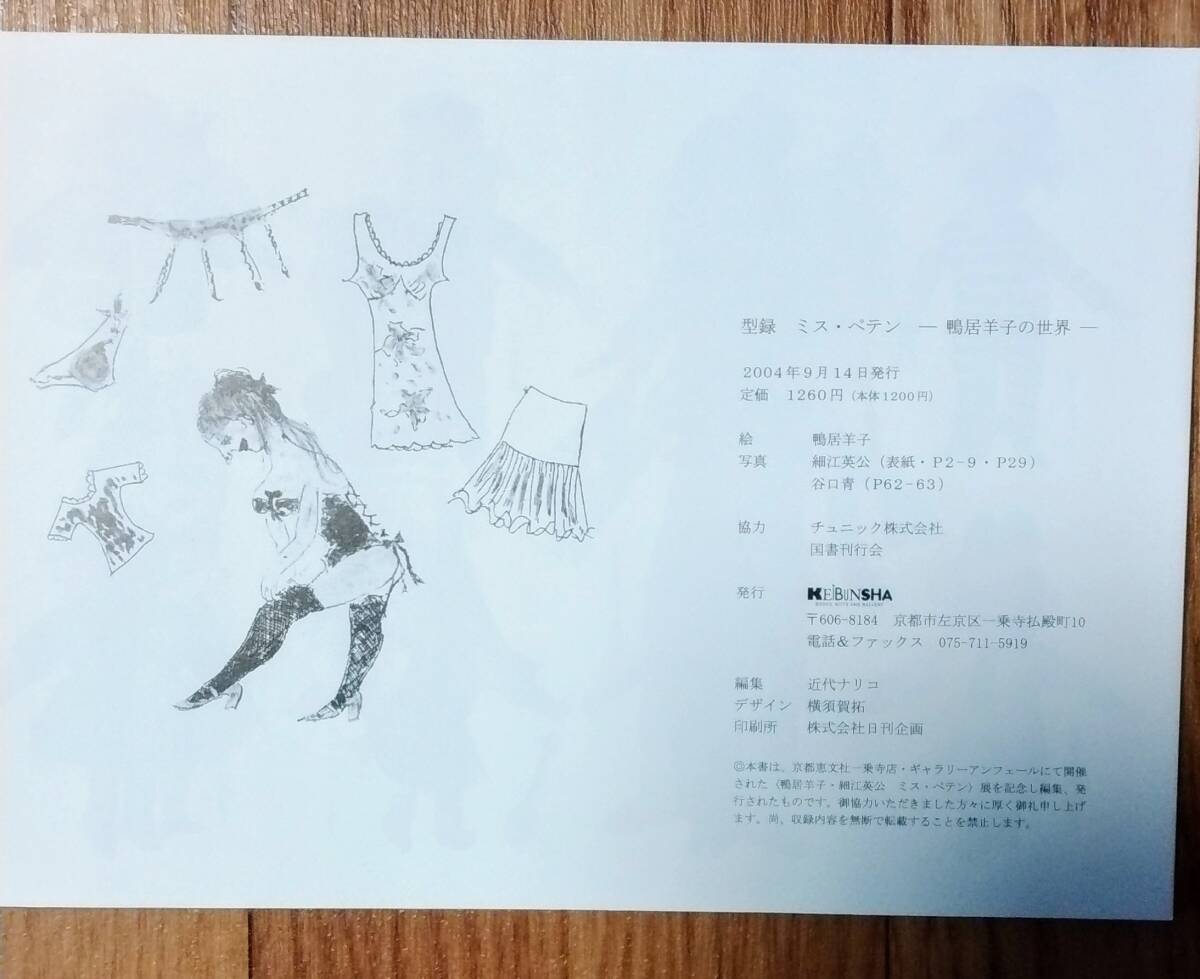 型録　ミス・ペテン　― 鴨居羊子の世界 ―
２００４年９月１４日発行
定価　１２６０円（本体１２００円）
絵　鴨居羊子
写真　細江英公（表紙・Ｐ２−９・Ｐ２９）
谷口青（Ｐ６２−６３）
協力　チュニック株式会社
国書刊行会
発行　KEIBUNSHA
BOOKS, GIFTS AND GALLERY
〒606-8184　京都市左京区一乗寺払殿町10
電話＆ファックス　075-711-5919
編集　近代ナリコ
デザイン　横須賀拓
印刷所　株式会社日刊企画
◎本書は、京都恵文社一乗寺店・ギャラリーアンフェールにて開催
された〈鴨居羊子・細江英公　ミス・ペテン〉展を記念し編集、発
行されたものです。御協力いただきました方々に厚く御礼申し上げ
ます。尚、収録内容を無断で転載することを禁止します。